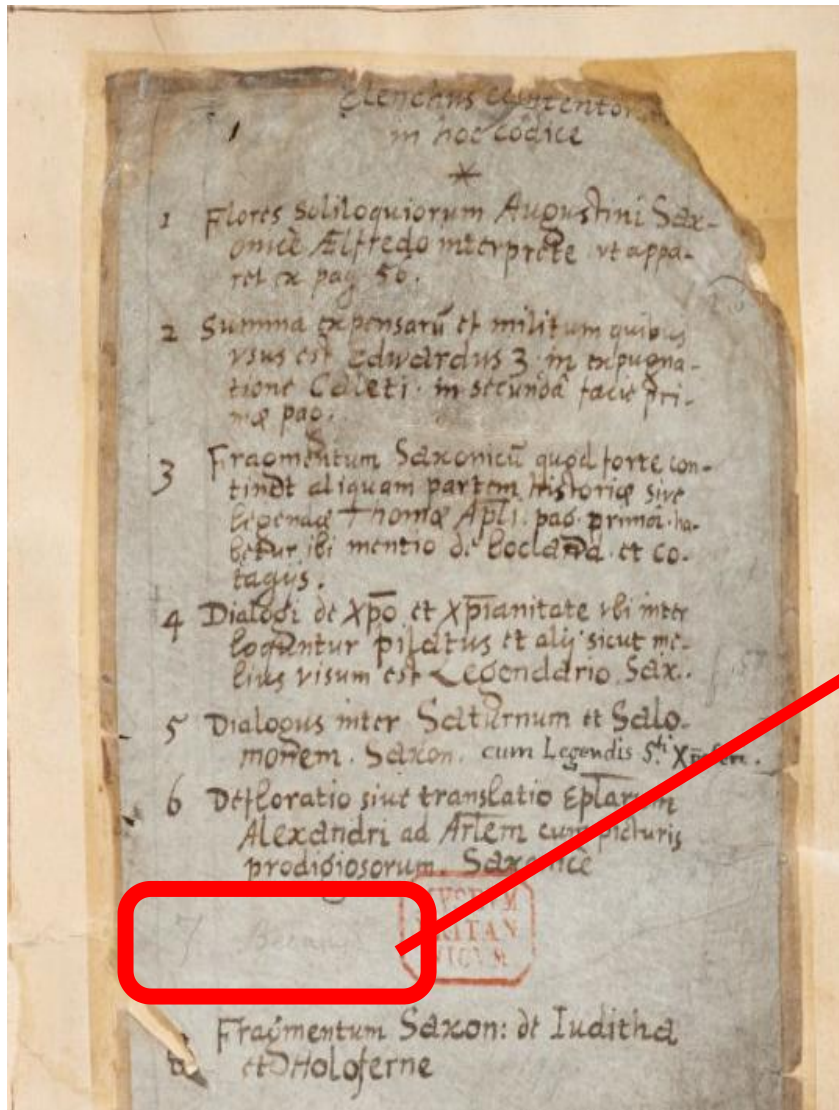 Elenchus contentor
in hoc codice
1 Flores Soliloquiorum Augustini Sax-
onicè Ælfredo interprete vt appa-
ret ex pag 50.
2 Summa expensarū et militum quibus
vsus est Edwardus 3 in expugna-
tione Caleti. in secunda facie pri-
mæ pag.
3 Fragmentum Saxonicū quod forte con-
tinet aliquam partem historiæ sive
legendæ Thomæ Apli. pag. primâ. ha-
betur ibi mentio de et co-
tagijs.
4 Dialogi de Xp̄o et Xp̄ianitate vbi inter
loquntur pilatus et alij sicut me-
lius visum est Legendario Sax.
5 Dialogus inter Saturnum et Salo-
monem. Saxon. cum Legendis Sti
6 Defloratio siue translatio Eplarum
Alexandri ad Artem cum picturis
prodigiosorum. Saxonicè
7
MVSEVM
BRITAN
NICVM
Fragmentum Saxon: de Iuditha
et Holoferne